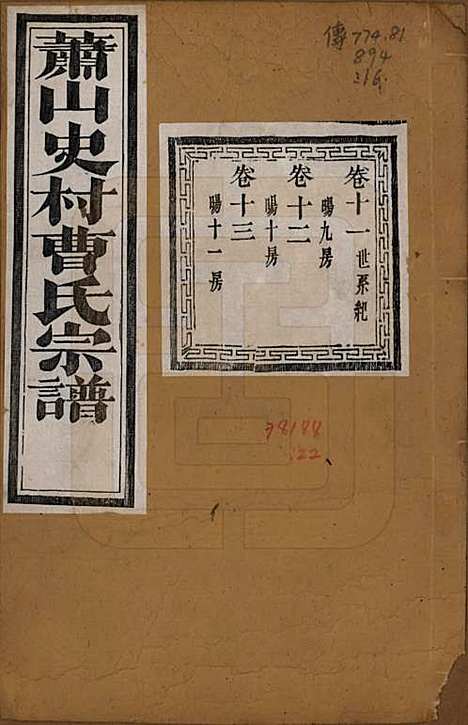 蕭山史村曹氏宗譜
卷十一 世系紀
暘九房
卷十二
暘十房
卷十三
暘十一房
傳 774.81
894
:16
78188
:22